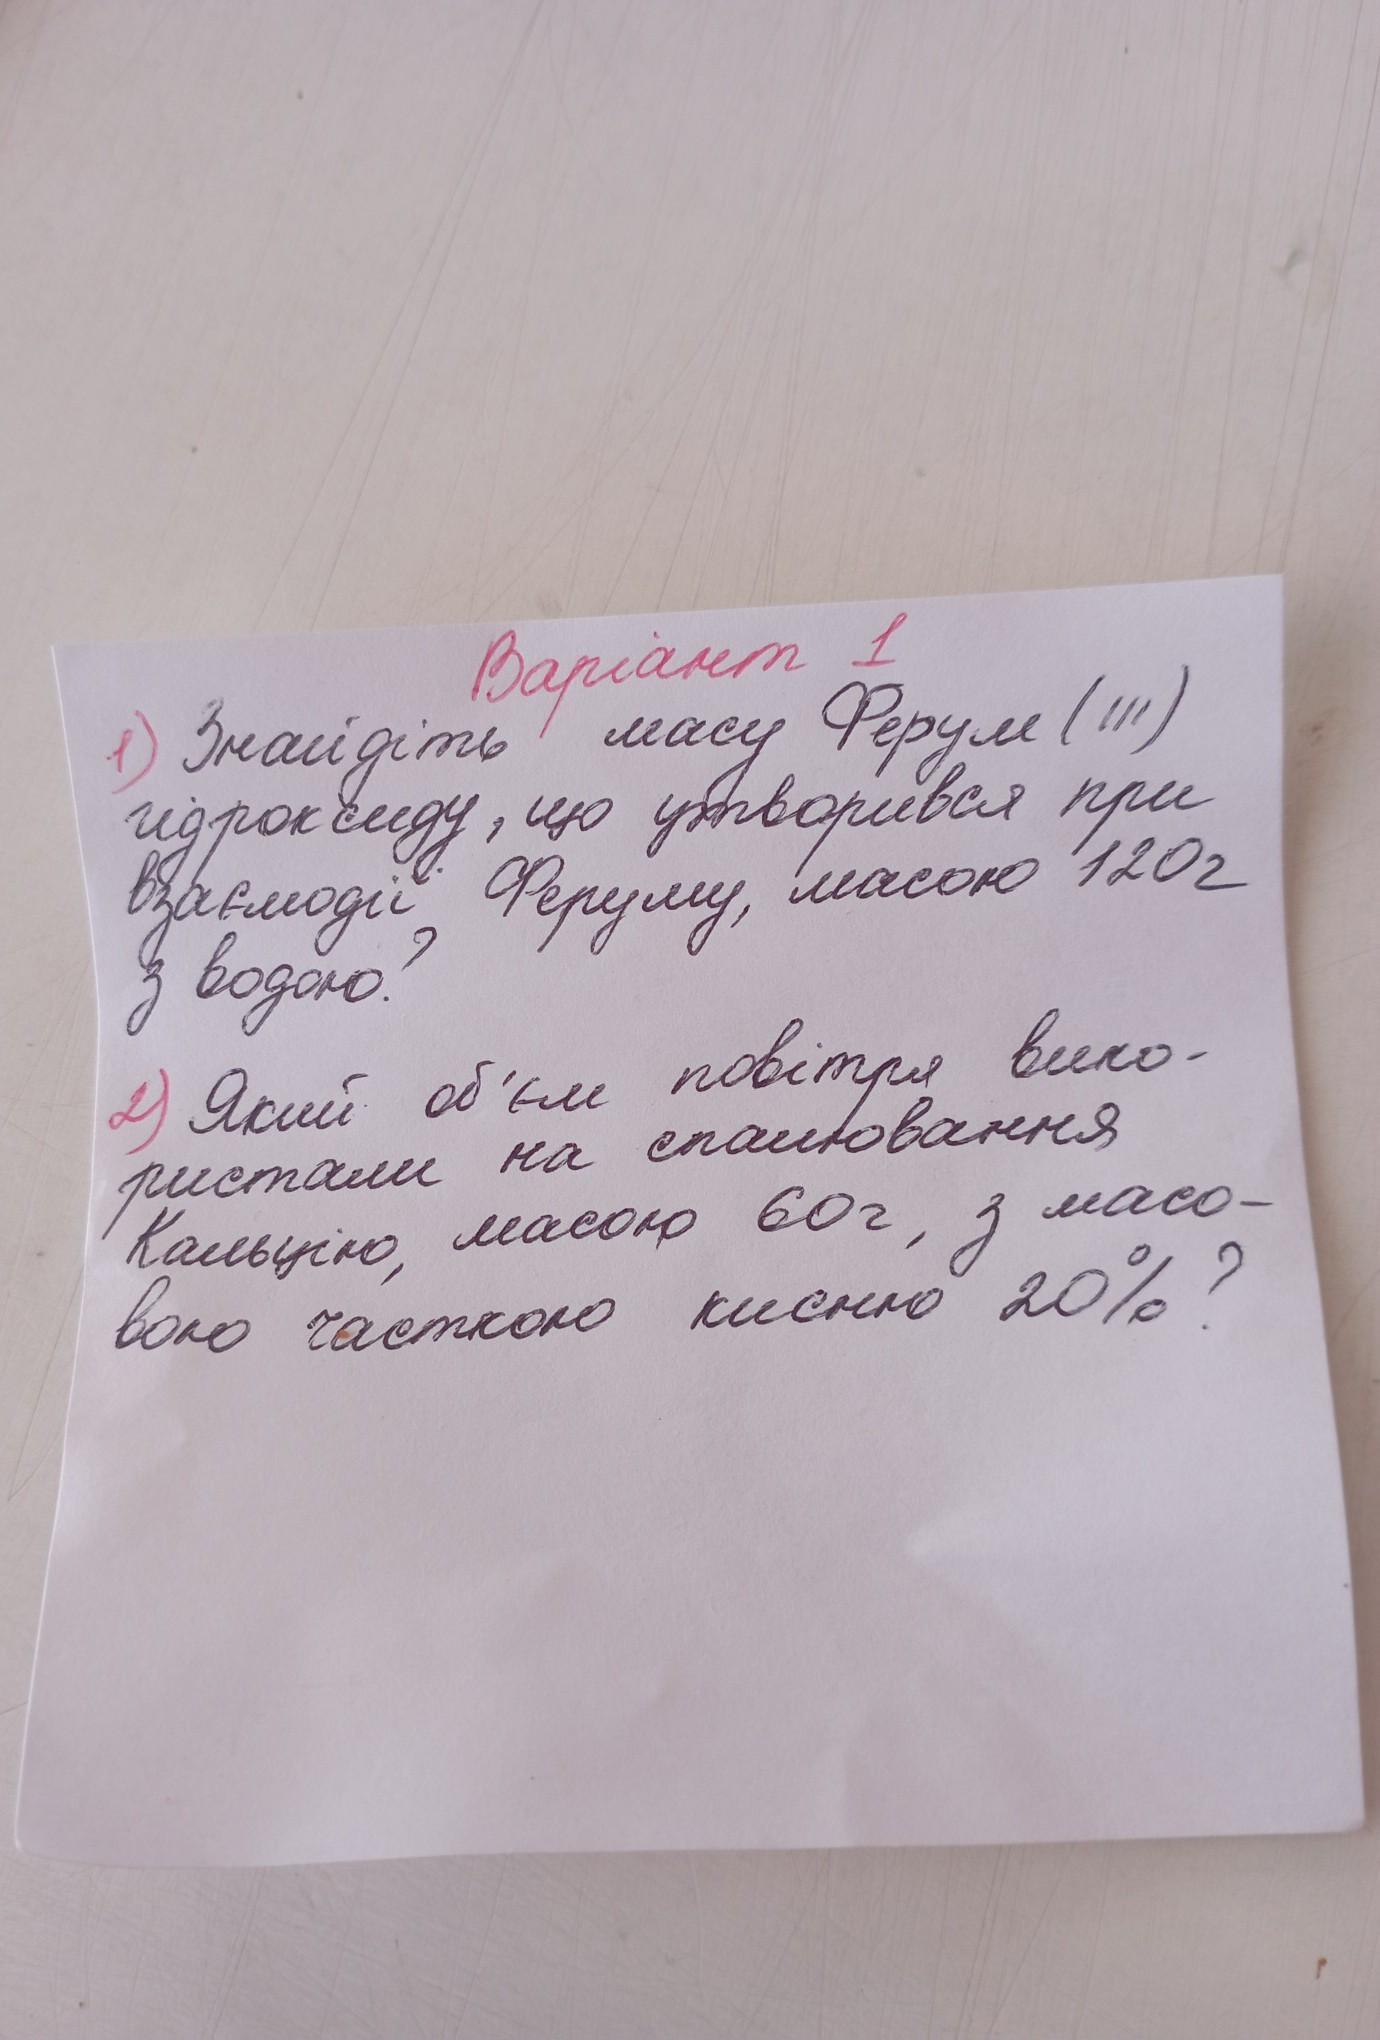 Варіант 1
1) Знайдіть масу Ферум (III)
гідроксиду, що утворився при
взаємодії Феруму, масою 120г
з водою?
2) Який об'єм повітря вико-
ристали на спалювання
Кальцію, масою 60г, з масо-
вою часткою кисню 20%?